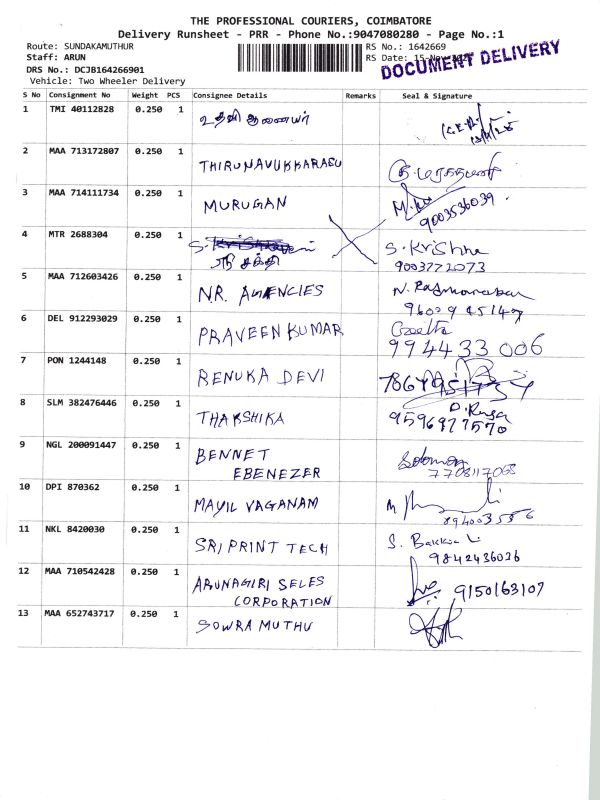 THE PROFESSIONAL COURIERS, COIMBATORE
Delivery Runsheet - PRR - Phone No.:9047080280 - Page No.:1
Route: SUNDAKAMUTHUR
RS No.: 1642669
Staff: ARUN
RS Date: 15-Nov-
DOCUMENT DELIVERY
DRS No.: DCJB164266901
Vehicle: Two Wheeler Delivery
S No Consignment No Weight PCS Consignee Details Remarks Seal & Signature
1 TMI 40112828 0.250 1 உதவி ஆணையர்
2 MAA 713172807 0.250 1 THIRUNAVUKKARASU
3 MAA 714111734 0.250 1 MURUGAN
9003536039
4 MTR 2688304 0.250 1 S. Krishna
9003772073
5 MAA 712603426 0.250 1 NR. AGENCIES
6 DEL 912293029 0.250 1 PRAVEEN KUMAR Geetha
994433 006
7 PON 1244148 0.250 1 RENUKA DEVI
8 SLM 382476446 0.250 1 THAKSHIKA
9596977570
9 NGL 200091447 0.250 1 BENNET
EBENEZER
10 DPI 870362 0.250 1 MAYIL VAGANAM
11 NKL 8420030 0.250 1 SRI PRINT TECH
9842436036
12 MAA 710542428 0.250 1 ARUNAGIRI SELES
CORPORATION 9150163107
13 MAA 652743717 0.250 1 SOWRA MUTHU